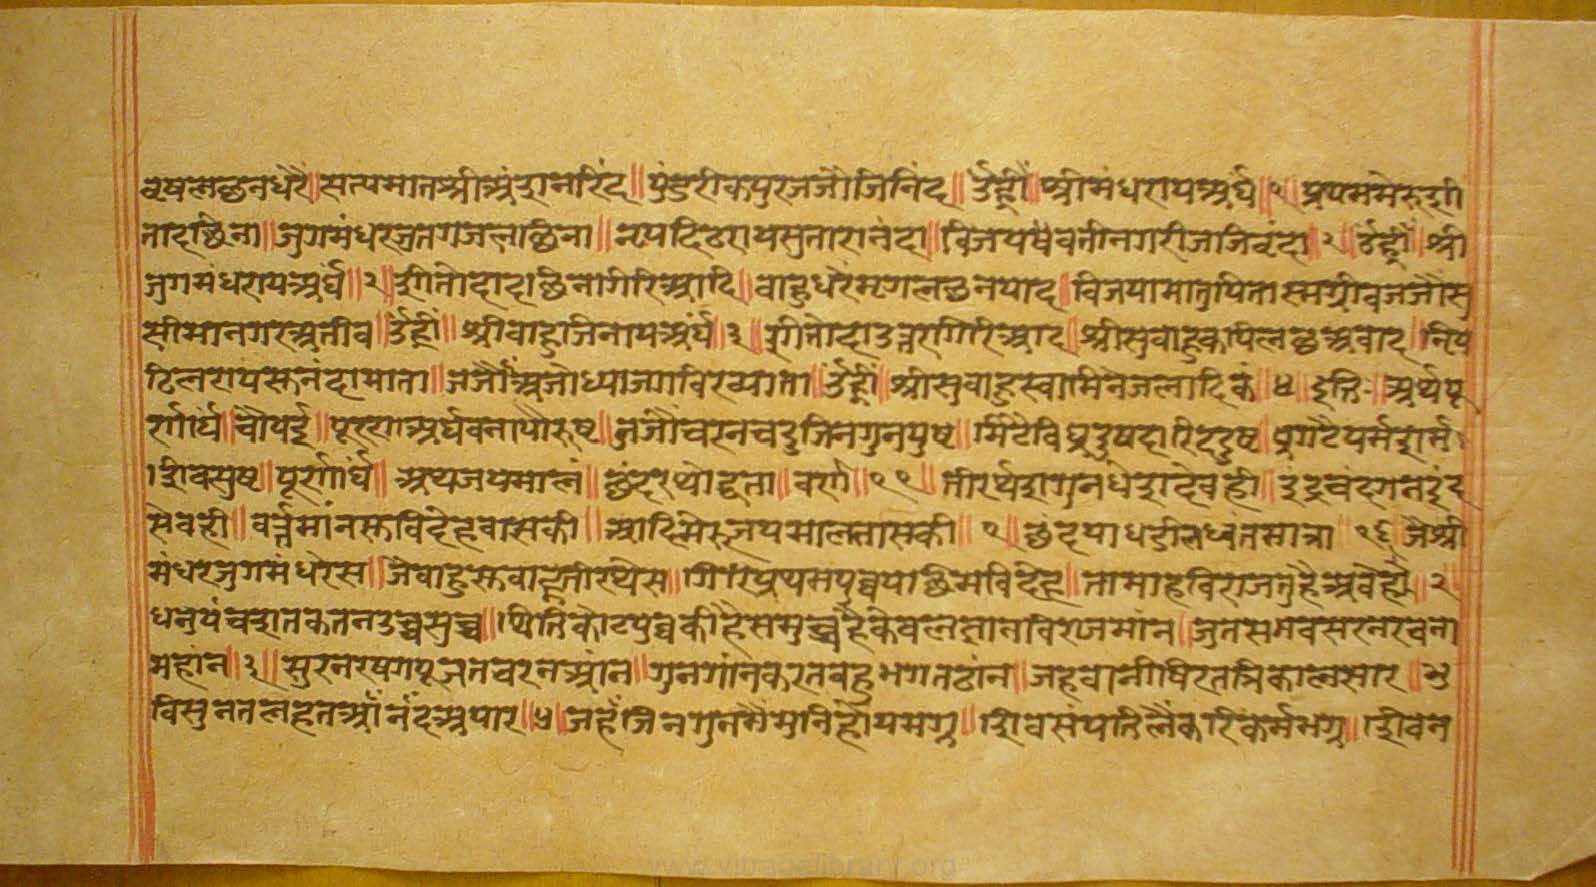 वृषलछनधरै॥सत्यमातश्रीअंशनरिंद॥पुंडरीकपुरजजौजिनिंद॥उंह्रीं॥श्रीमंधरायअर्घ॥१॥प्रथममेरुशी
तादछिना॥जुगमंधरजुतगजलाछिना॥नृपदिढरायसुतारानंदा॥विजयवतीनगरीजजिवृंदा॥२॥उंह्रीं॥श्री
जुगमंधरायअर्घ॥२॥शीतोदादाछिनागिरिआदि॥बाहुधरैमृगलछनपाद॥विजयामातुपितासमग्रीवजजौंसु
सीमानगरअतीव॥उंह्रीं॥श्रीबाहुजिनायअर्घ॥३॥शीतोदाउत्तरगिरिआद॥श्रीसुबाहुकपिलछअबाद॥निष
ढिलरायसुनंदामाता॥जजौंअजोध्याजगविख्याता॥उंह्रीं॥श्रीसुबाहुस्वामिनेजलादिकं॥४॥इति॥अर्थपू
र्णार्घ॥चौपई॥पूरणअर्घबनापौरुष॥जजौंचरनचहुजिनगुनपुष॥मिटैविघ्नदुषहारिददुष॥प्रगटैधर्मशर्म
शिवसुष॥पूर्णार्घ॥अथजयमाल॥छंदरथोद्धता॥वर्ण॥११॥तीरथेशगुनधेशदेवही॥इंद्रचंदगनवृंद
सेवही॥वर्त्तमानसुविदेहवासकी॥आदिमेरुजयमालतासकी॥१॥छंदपाधडीलध्वंतमात्रा॥१६॥जैश्री
मंधरजुगमंधरेस॥जैबाहुसुबाहूतीरथेस॥गिरिप्रथमपुव्वपछिमविदेह॥तामाहिविराजतुहैअवैहो॥२॥
धनुपंचशतकतनउच्चसुच्च॥थितिकोटपुव्वकीहैसमुच्च॥हैकेवलज्ञानविराजमान॥जुतसमवसरनरचना
महान॥३॥सुरनरषगपूजतचरनआन॥गुनगानकरतबहुभगतठान॥जहवानीषिरतत्रिकालसार॥भु
विसुनतलहतआनंदअपार॥४॥जहँजिनगुनमैमुनिहोयमग्न॥शिवसंपतिलैंकरिकर्मभग्न॥शिवन